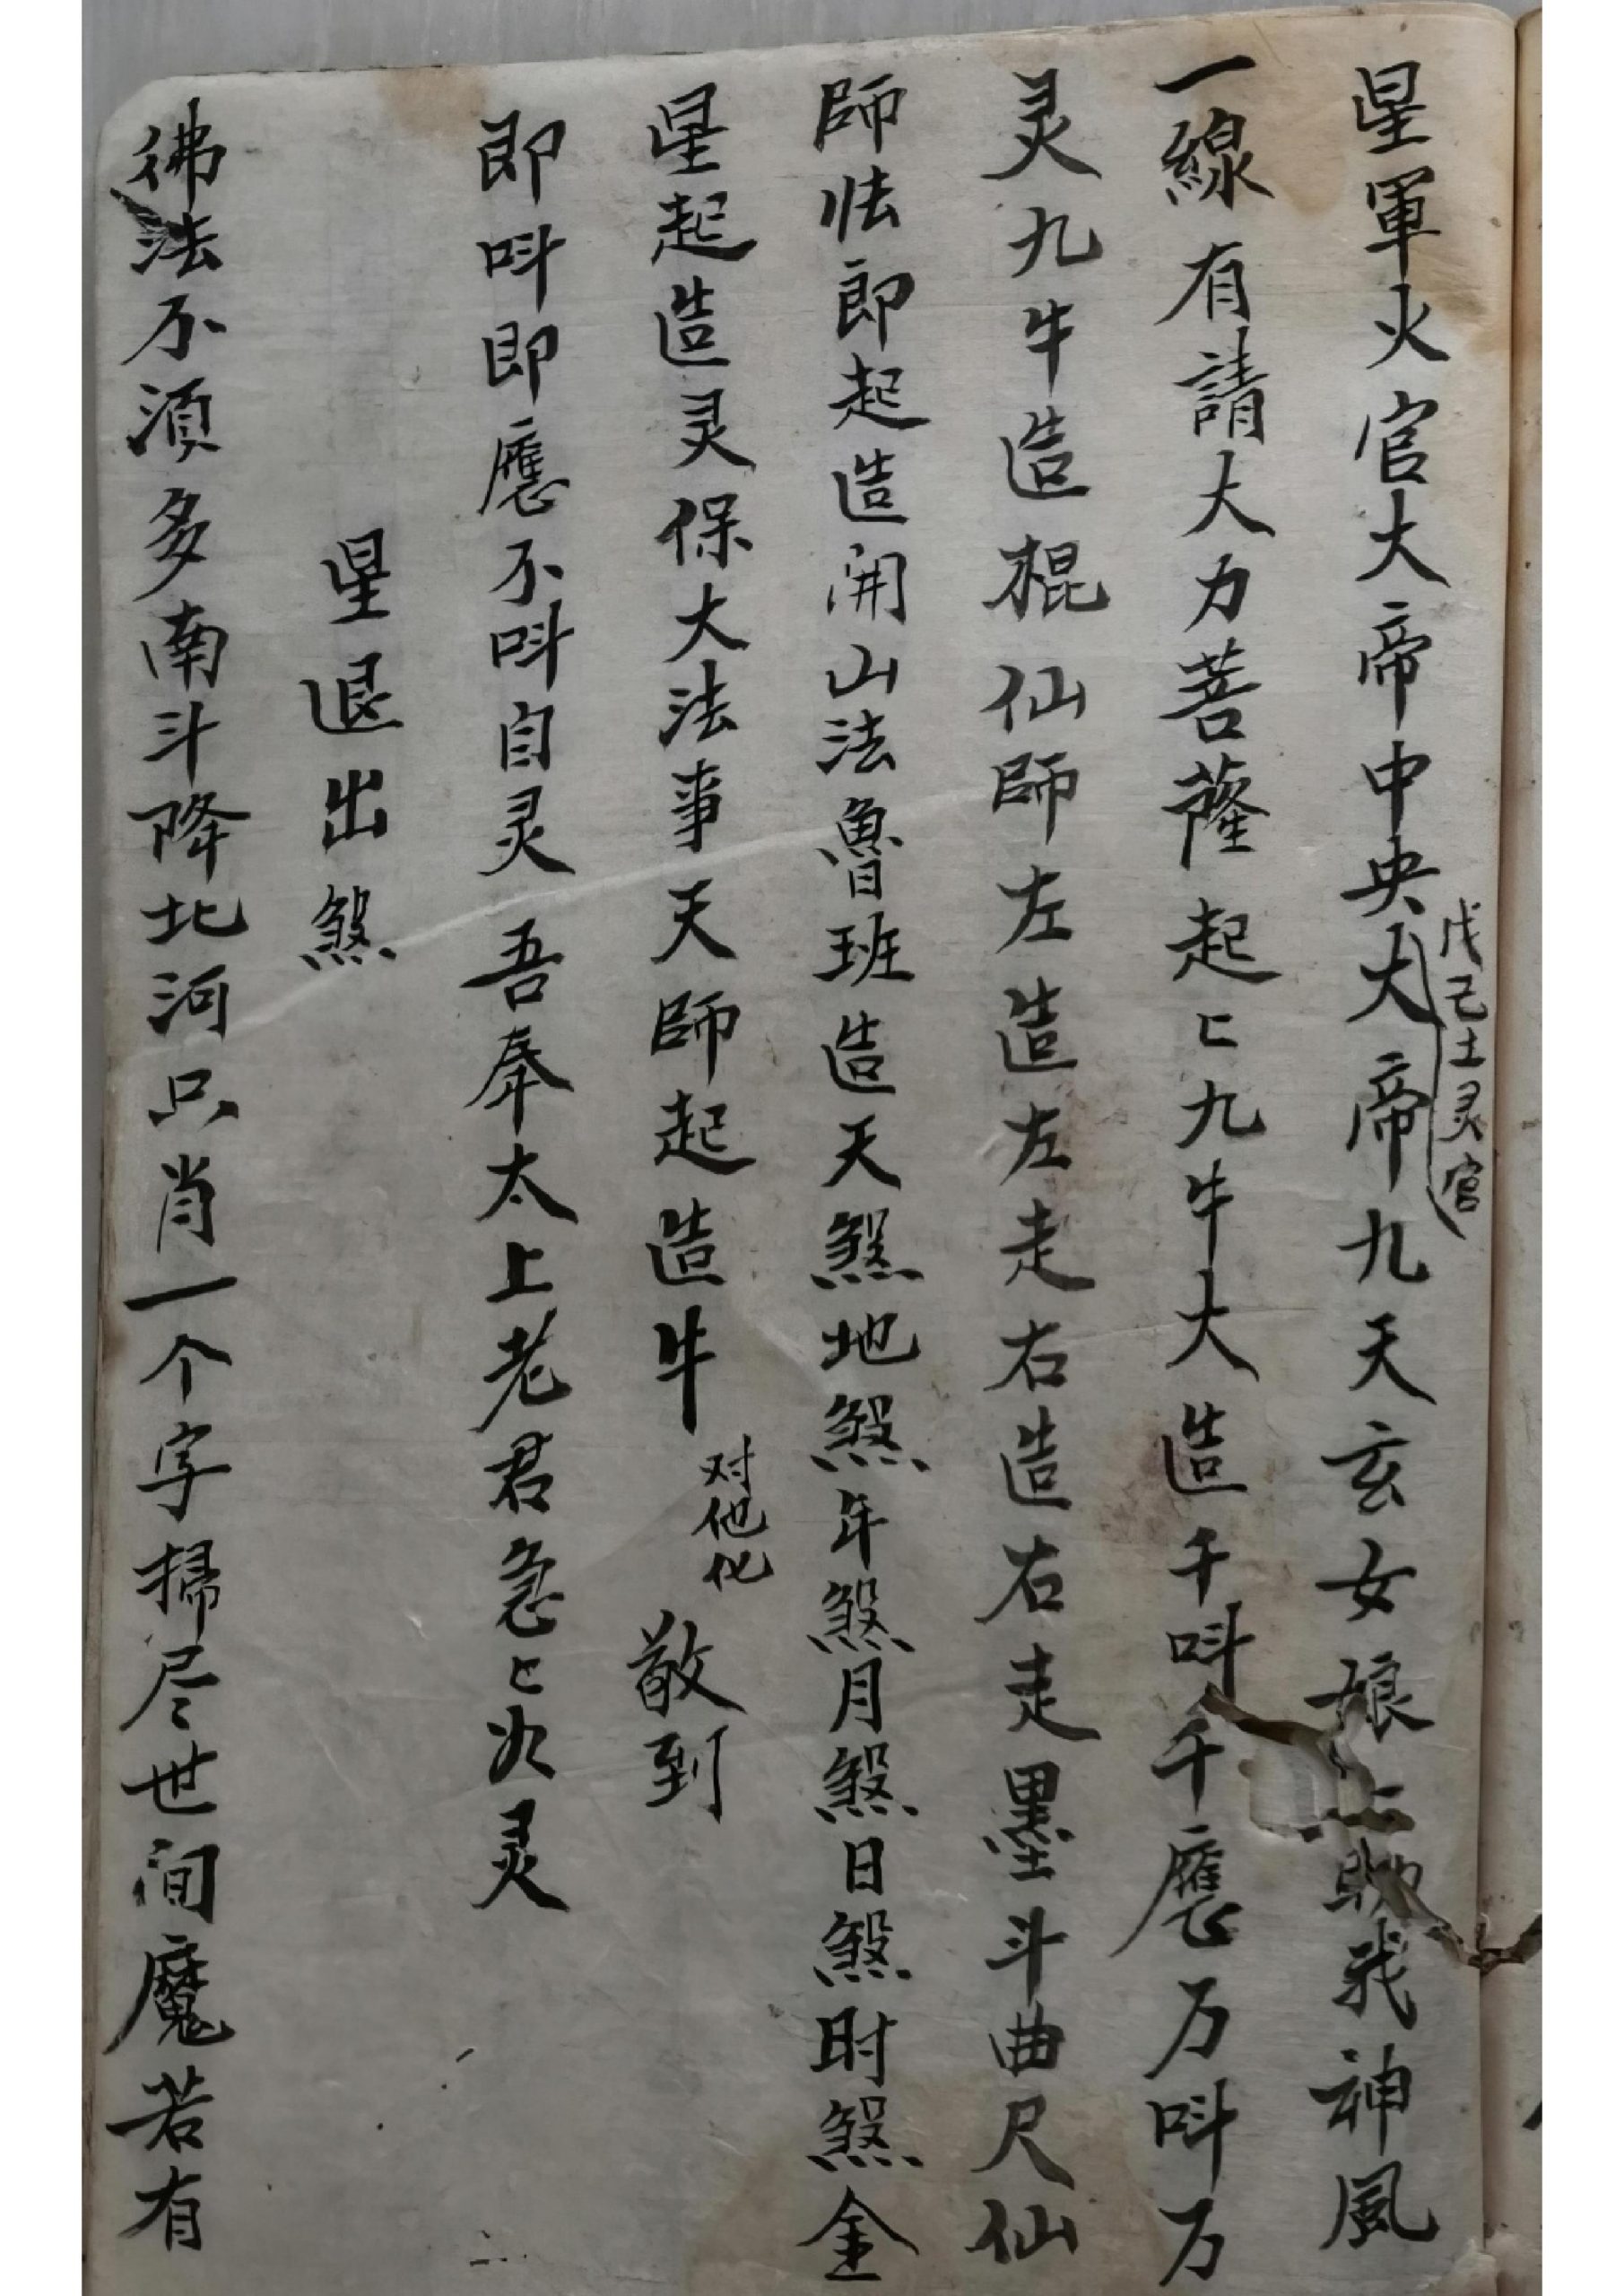 星軍火官大帝中央大帝九天玄女娘助我神風
戊己土灵官
一線有請大力菩薩起匕九牛大造千呌千應万呌万
灵九牛造棍仙師左造左走右造右走墨斗曲尺仙
師怯即起造開山法魯班造天煞地煞年煞月煞日煞时煞金
星起造灵保大法事天師起造牛
对他化
敬到
即呌即應不呌自灵吾奉太上老君急匕次灵
星退出煞
彿法不須多南斗降北河只肖一个字掃尽世间魔若有